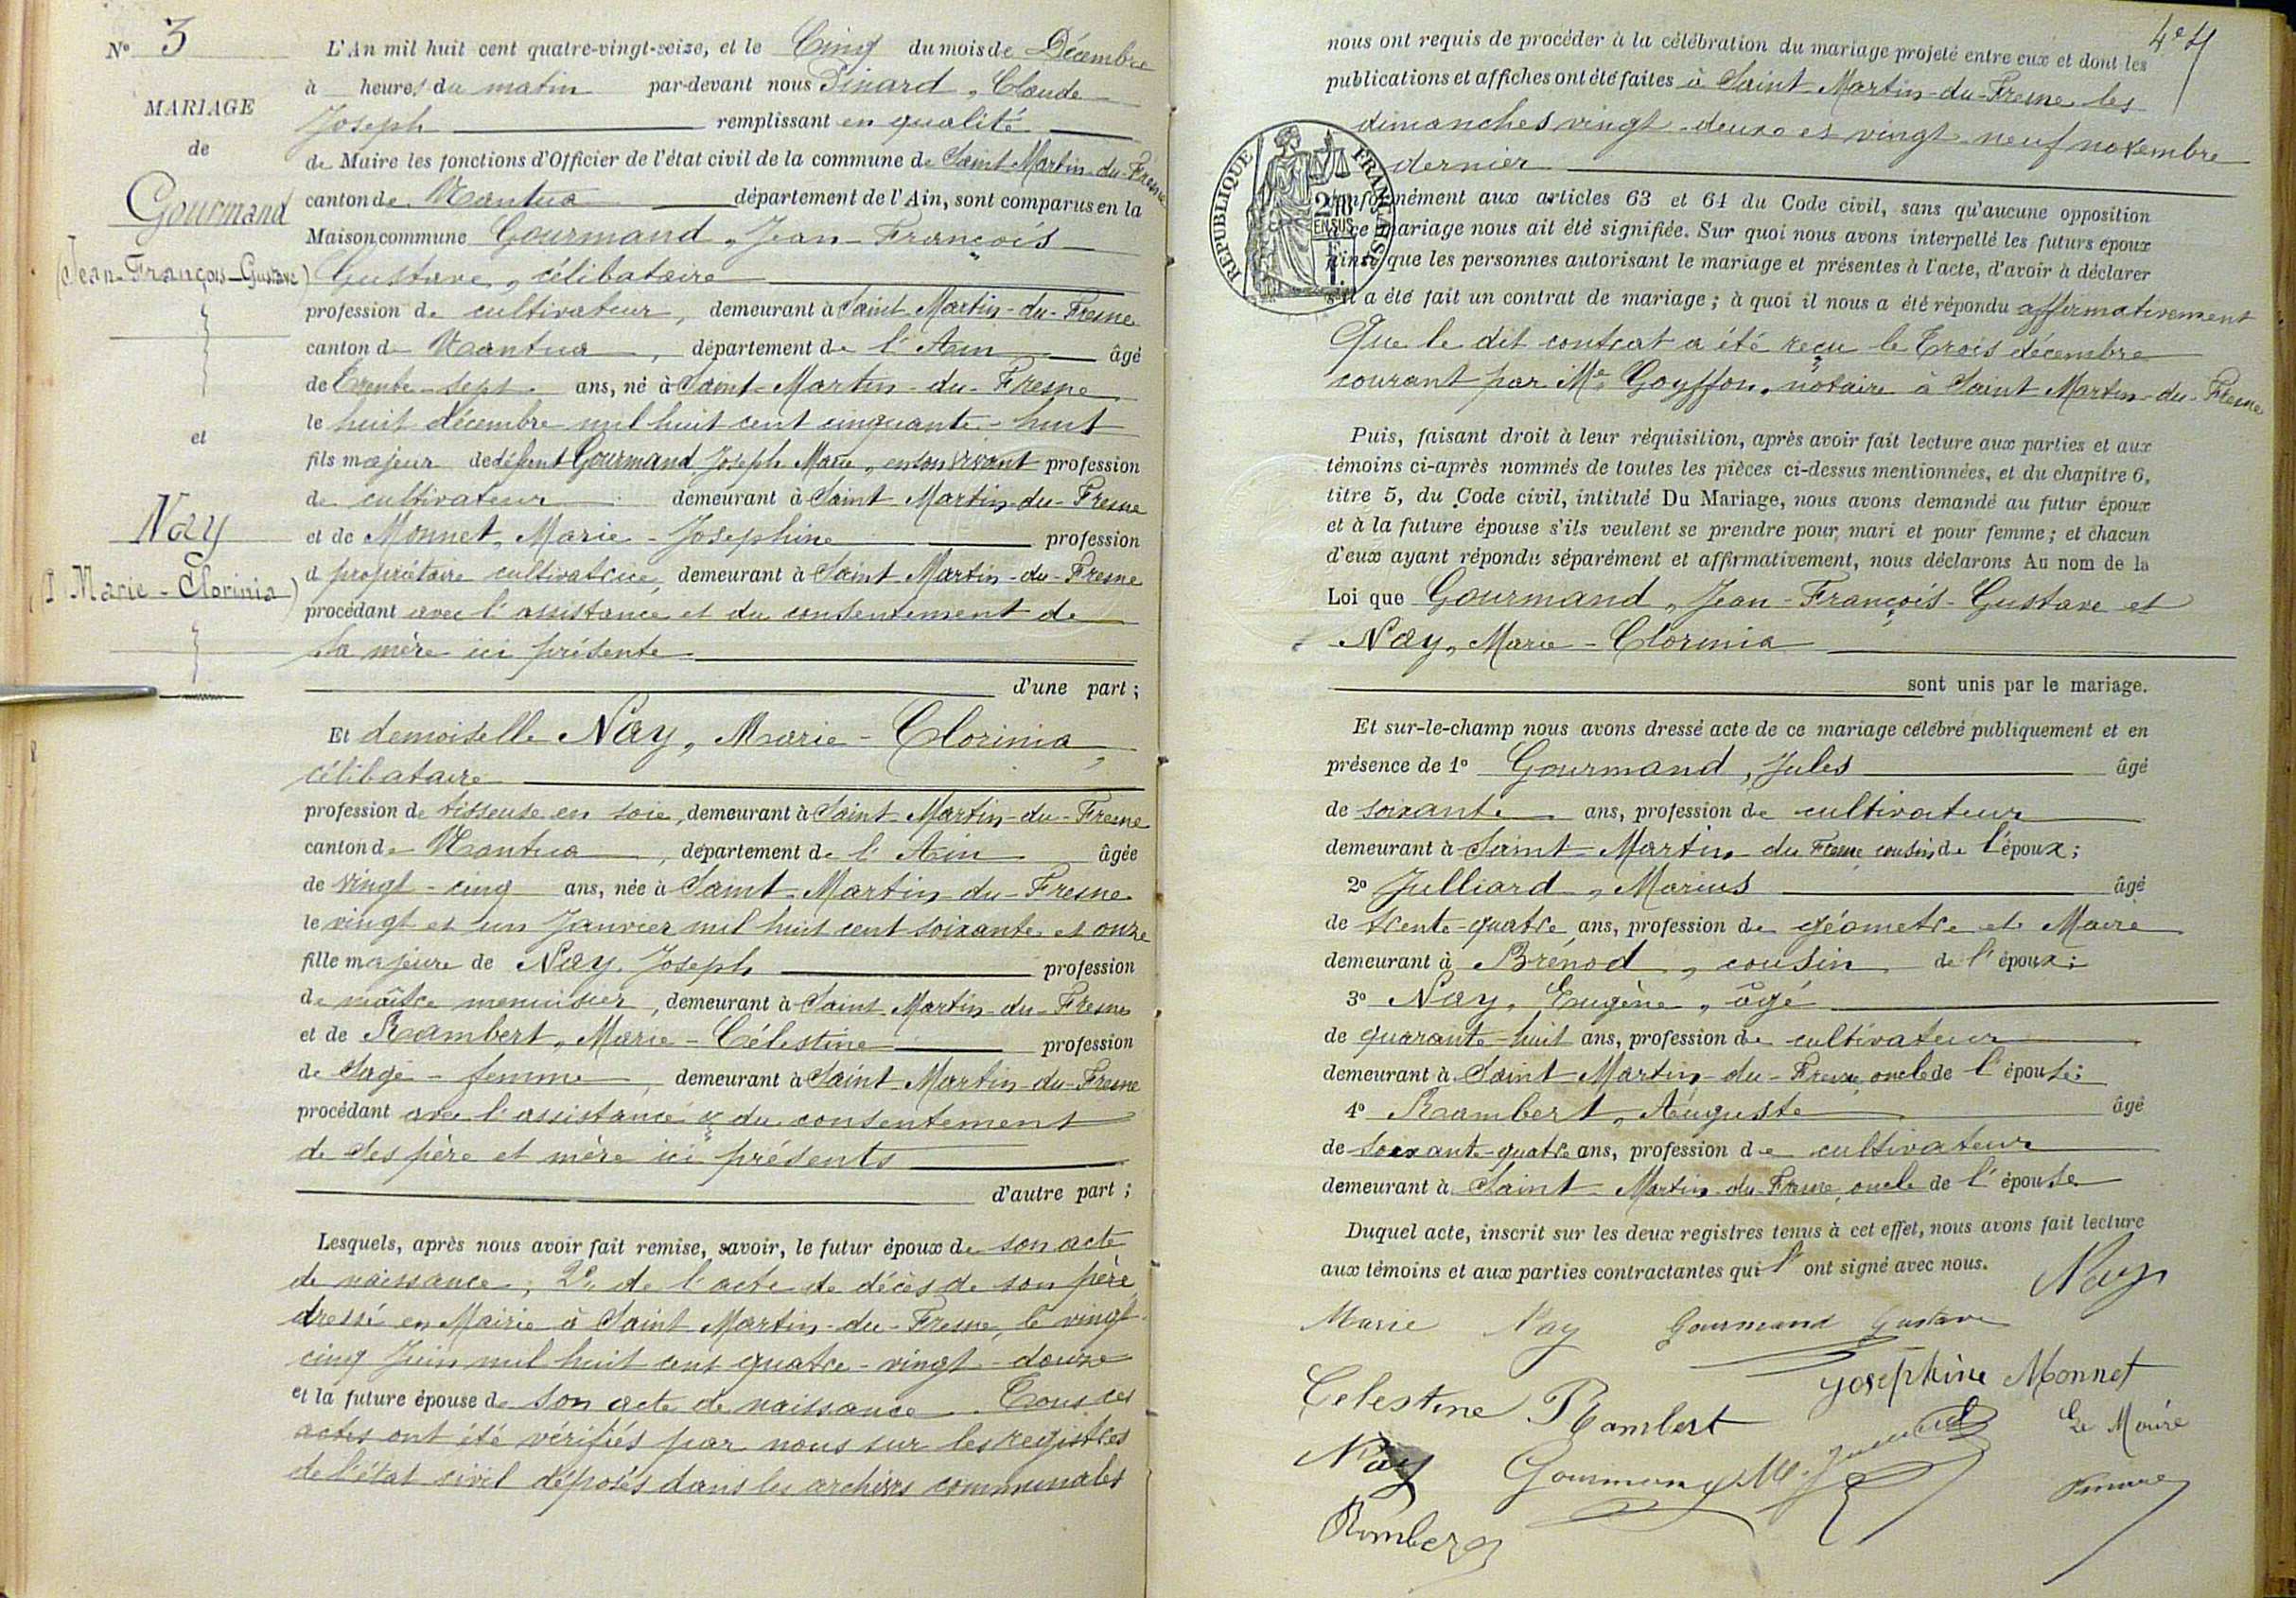 N° 3
MARIAGE
de
Gourmand
(Jean-François-Gustave)
et
Nay
(Marie-Clorinia)
L'An mil huit cent quatre-vingt-seize, et le Cinq du mois de Décembre
à heures du matin par-devant nous Pinard, Claude
Joseph remplissant en qualité
de Maire les fonctions d'Officier de l'état civil de la commune de Saint Martin-du-Fresne
canton de Nantua département de l'Ain, sont comparus en la
Maison commune Gourmand, Jean-François
Gustave, célibataire
profession de cultivateur, demeurant à Saint Martin-du-Fresne
canton de Nantua, département de l'Ain âgé
de trente-sept ans, né à Saint-Martin-du-Fresne
le huit décembre mil huit cent cinquante-huit
fils majeur de défunt Gourmand Joseph Marie, en son vivant profession
de cultivateur demeurant à Saint Martin-du-Fresne
et de Monnet, Marie-Josephine profession
d propriétaire cultivatrice, demeurant à Saint Martin-du-Fresne
procédant avec l'assistance et du consentement de
sa mère ici présente
d'une part;
Et demoiselle Nay, Marie-Clorinia,
célibataire
profession de tisseuse en soie, demeurant à Saint-Martin-du-Fresne
canton de Nantua, département de l'Ain âgée
de vingt-cinq ans, née à Saint-Martin-du-Fresne
le vingt et un Janvier mil huit cent soixante et onze
fille majeure de Nay, Joseph profession
de maître menuisier, demeurant à Saint-Martin-du-Fresne
et de Rambert, Marie-Célestine profession
de Sage-femme, demeurant à Saint-Martin-du-Fresne
procédant avec l'assistance & du consentement
de ses père et mère ici présents
d'autre part;
Lesquels, après nous avoir fait remise, savoir, le futur époux de son acte
de naissance; 2° de l'acte de décès de son père
dressé en Mairie à Saint Martin-du-Fresne, le vingt-
cinq Juin mil huit cent quatre-vingt-douze
et la future épouse de son acte de naissance. Tous ces
actes ont été vérifiés par nous sur les registres
de l'état civil déposés dans les archives communales
nous ont requis de procéder à la célébration du mariage projeté entre eux et dont les
publications et affiches ont été faites à Saint Martin-du-Fresne les
dimanches vingt-deux et vingt-neuf novembre
dernier
REPUBLIQUE FRANÇAISE
conformément aux articles 63 et 64 du Code civil, sans qu'aucune opposition
à ce mariage nous ait été signifiée. Sur quoi nous avons interpellé les futurs époux
ainsi que les personnes autorisant le mariage et présentes à l'acte, d'avoir à déclarer
s'il a été fait un contrat de mariage; à quoi il nous a été répondu affirmativement
Que le dit contrat a été reçu le Trois décembre
courant par Me Goyffon, notaire à Saint Martin-du-Fresne
Puis, faisant droit à leur réquisition, après avoir fait lecture aux parties et aux
témoins ci-après nommés de toutes les pièces ci-dessus mentionnées, et du chapitre 6,
titre 5, du Code civil, intitulé Du Mariage, nous avons demandé au futur époux
et à la future épouse s'ils veulent se prendre pour mari et pour femme; et chacun
d'eux ayant répondu séparément et affirmativement, nous déclarons Au nom de la
Loi que Gourmand, Jean-François-Gustave et
Nay, Marie-Clorinia
sont unis par le mariage.
Et sur-le-champ nous avons dressé acte de ce mariage célébré publiquement et en
présence de 1° Gourmand, Jules âgé
de soixante ans, profession de cultivateur
demeurant à Saint-Martin du Fresne cousin de l'époux;
2° Julliard, Marius âgé
de trente-quatre ans, profession de géomètre et Maire
demeurant à Brénod, cousin de l'époux;
3° Nay, Eugène, âgé
de quarante-huit ans, profession de cultivateur
demeurant à Saint Martin-du-Fresne, oncle de l'épouse;
4° Rambert, Auguste âgé
de soixante-quatre ans, profession de cultivateur
demeurant à Saint-Martin-du-Fresne, oncle de l'épouse
Duquel acte, inscrit sur les deux registres tenus à cet effet, nous avons fait lecture
aux témoins et aux parties contractantes qui l'ont signé avec nous.
Nay
Marie Nay Gourmand Gustave
Celestine Rambert Josephine Monnet
Nay Gourmand M. Le Maire